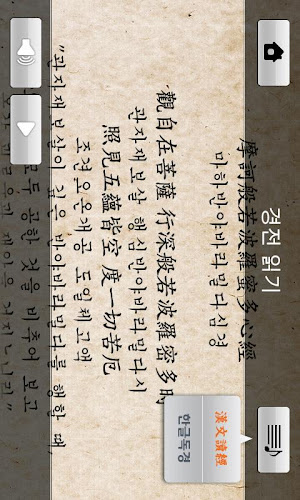 경전 읽기
漢文讀經
한글독경
摩訶般若波羅蜜多心經
마하반야바라밀다심경
觀自在菩薩 行深般若波羅密多時
관자재보살 행심반야바라밀다시
照見五蘊皆空 度一切苦厄
조견오온개공 도일체고액
"관자재보살이 깊은 반야바라밀다를 행할 때,
모두 공한 것을 비추어 보고